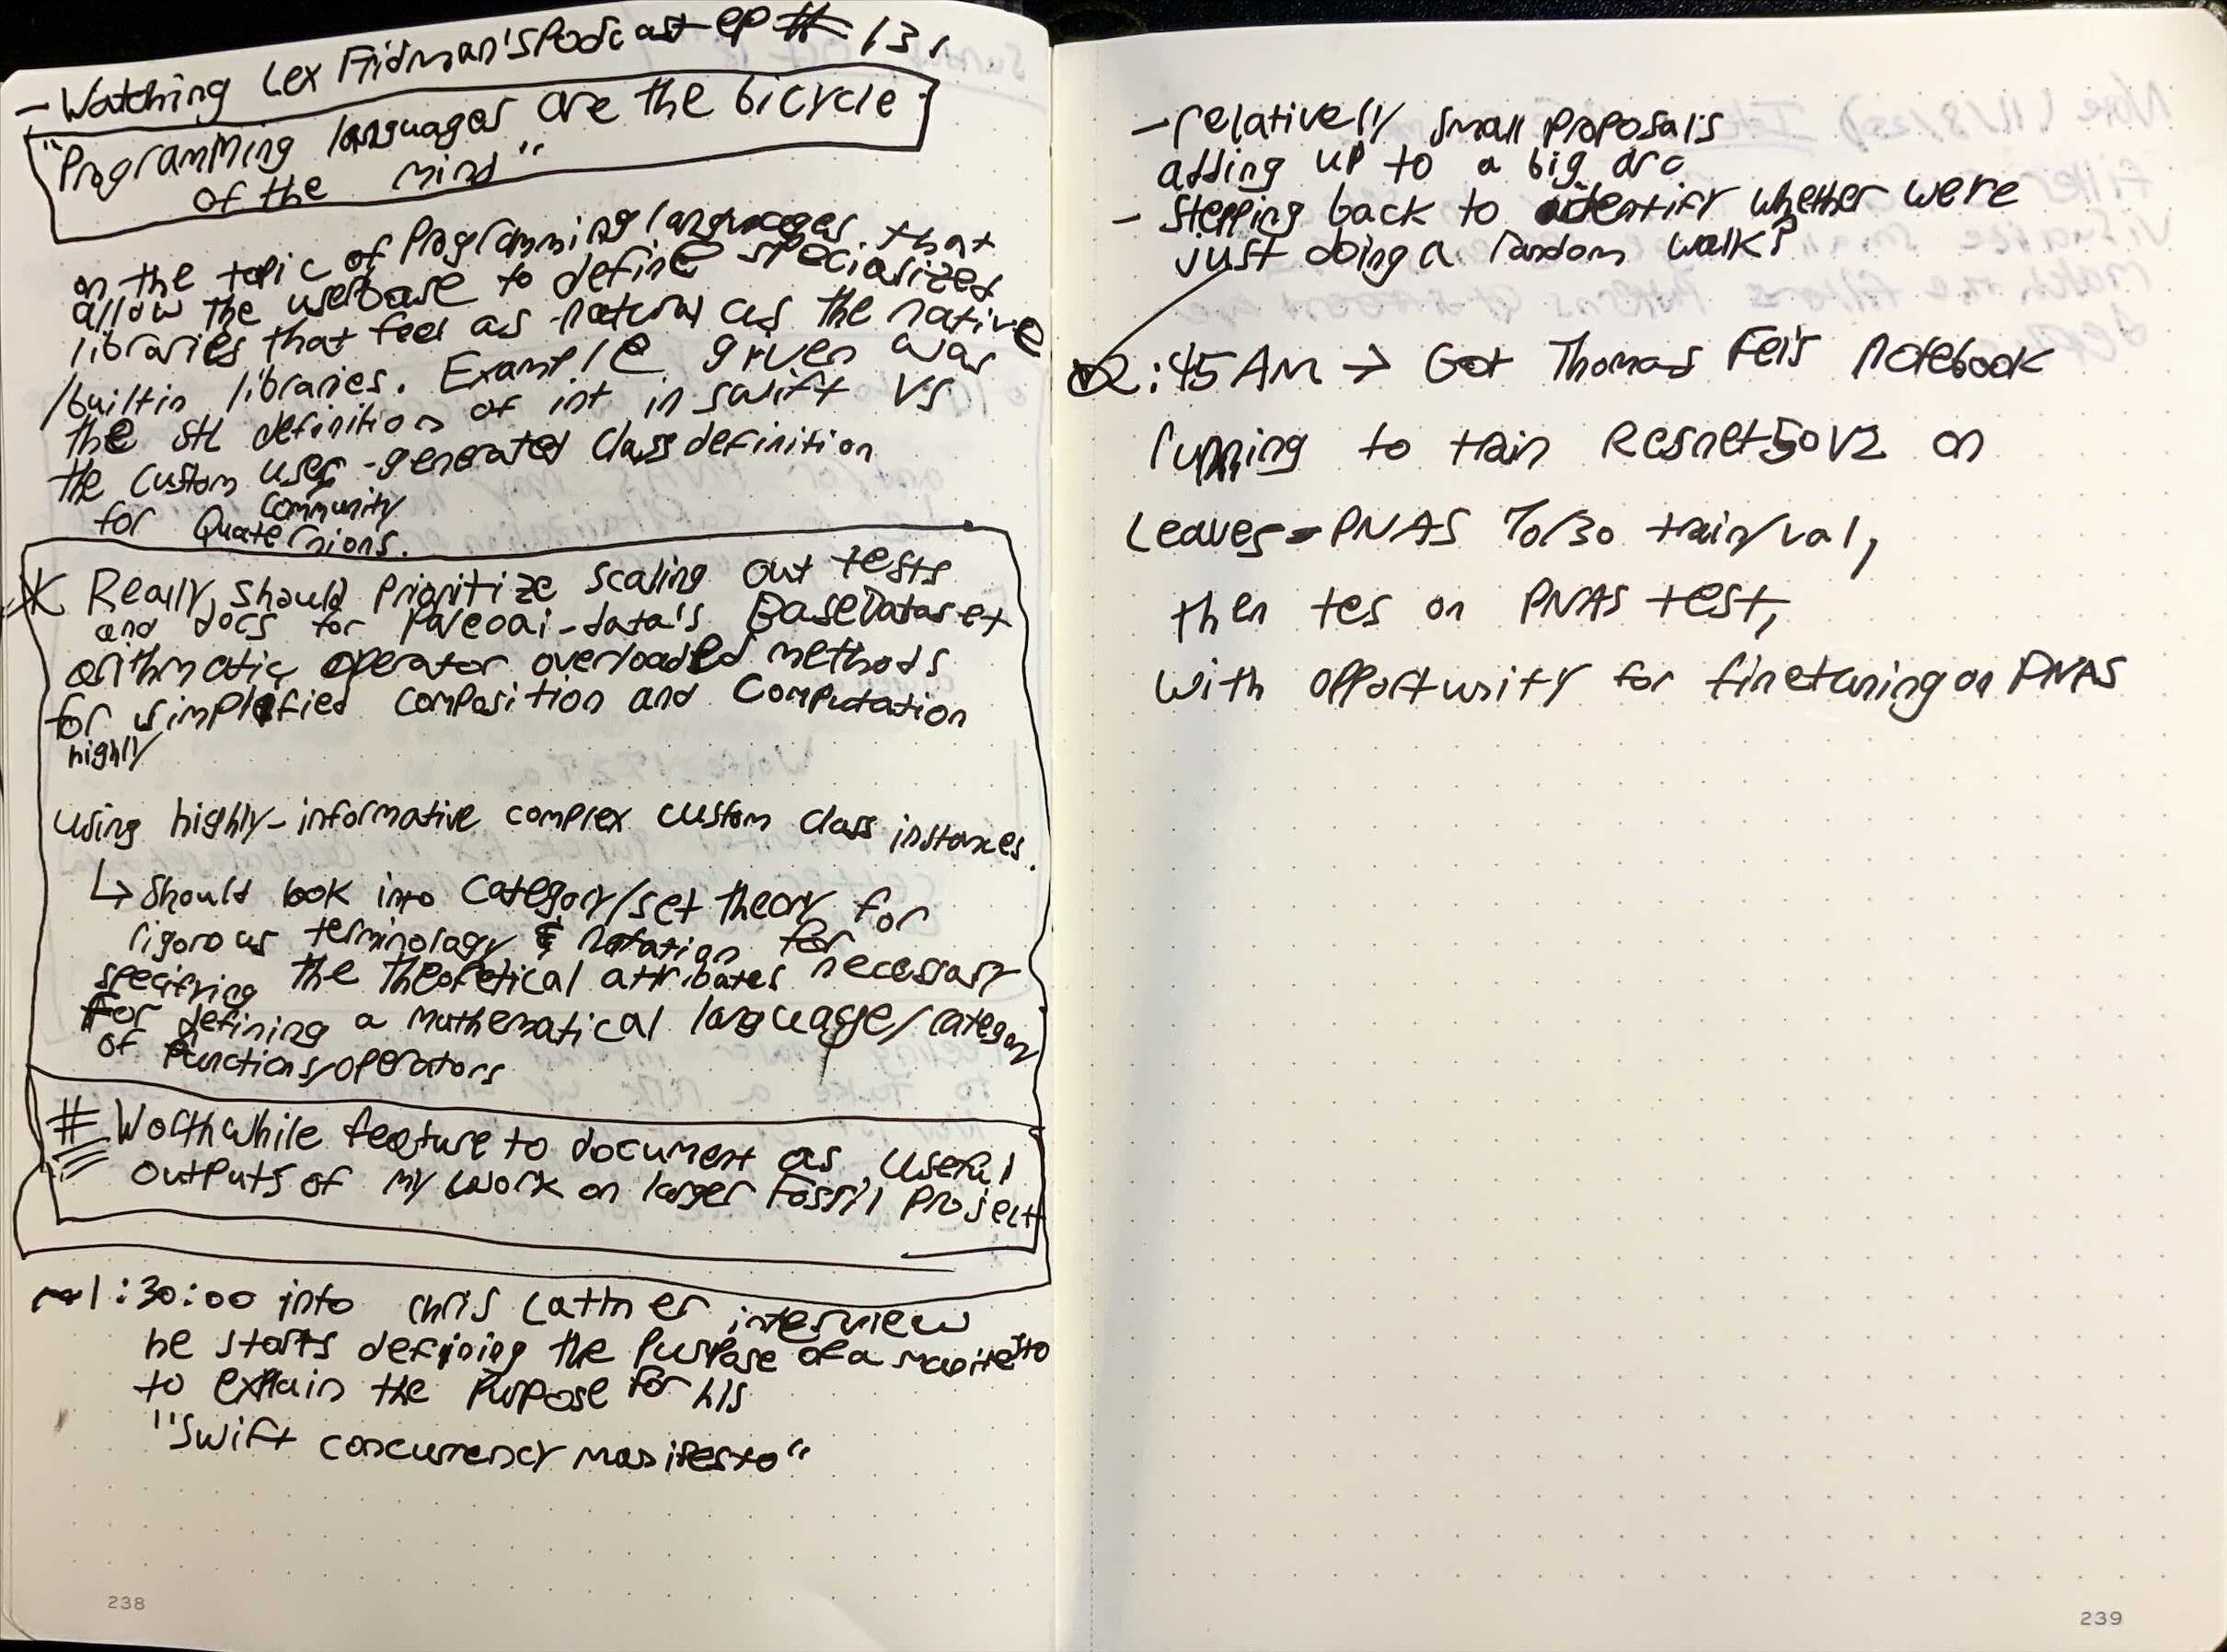 - Watching Lex Fridman's Podcast ep # 131
"Programming languages are the bicycle
of the mind"
on the topic of Programming languages that
allow the userbase to define specialized
libraries that feel as natural as the native
/builtin libraries. Example given was
the stl definition of int in swift vs
the custom user-generated class definition
community
for Quaternions.
* Really should prioritize scaling out tests
and docs for Paleoai-data's BaseDataset
arithmatic operator overloaded methods
for simplified composition and computation
highly
using highly-informative complex custom class instances.
↳ Should look into category/set theory for
rigorous terminology & notation for
specifying the theoretical attributes necessary
for defining a mathematical language/category
of functions/operators
# Worthwhile feature to document as useful
outputs of my work on larger Fossil Project
~1:30:00 into Chris Lattner interview
he starts defining the purpose of a manifesto
to explain the purpose for his
"Swift concurrency manifesto"
238
- relatively small proposals
adding up to a big arc
- Stepping back to identify whether were
just doing a random walk?
2:45 AM → Got Thomas Fel's notebook
running to train Resnet50v2 on
Leaves-PNAS 70/30 train/val,
then tes on PNAS test,
with opportunity for finetuning on PNAS
239